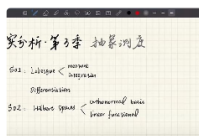 实分析·第3季 抽象测度
S01: Lebesgue < measure
integration
Differentiation
S02: Hilbert Spaces < orthonormal basis
linear functional